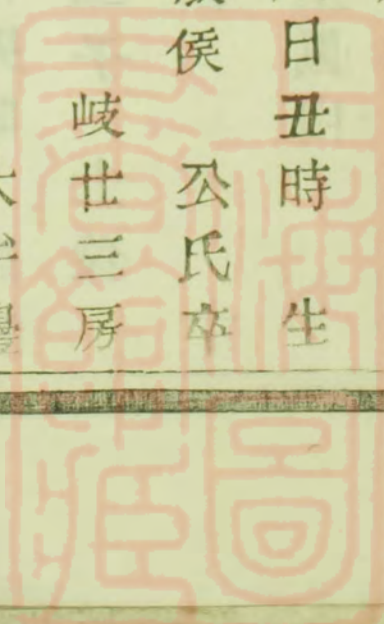 日丑時 生
侯 公氏卒
岐廿三房